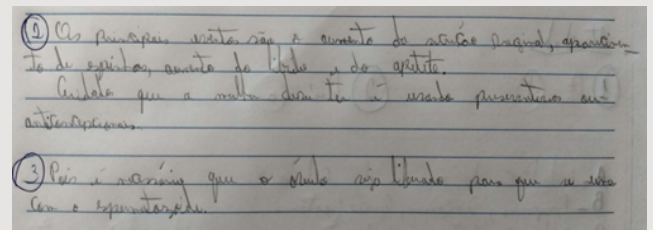 ② Os principais efeitos são o aumento da secreção vaginal, aparecimen-
to de espinhas, aumento da libido e do apetite.
Cuidado que a mulher deve ter é usando preservativos ou
anticoncepcionais.
③ Pois é necessário que o óvulo seja liberado para que se una
com o espermatozoide.